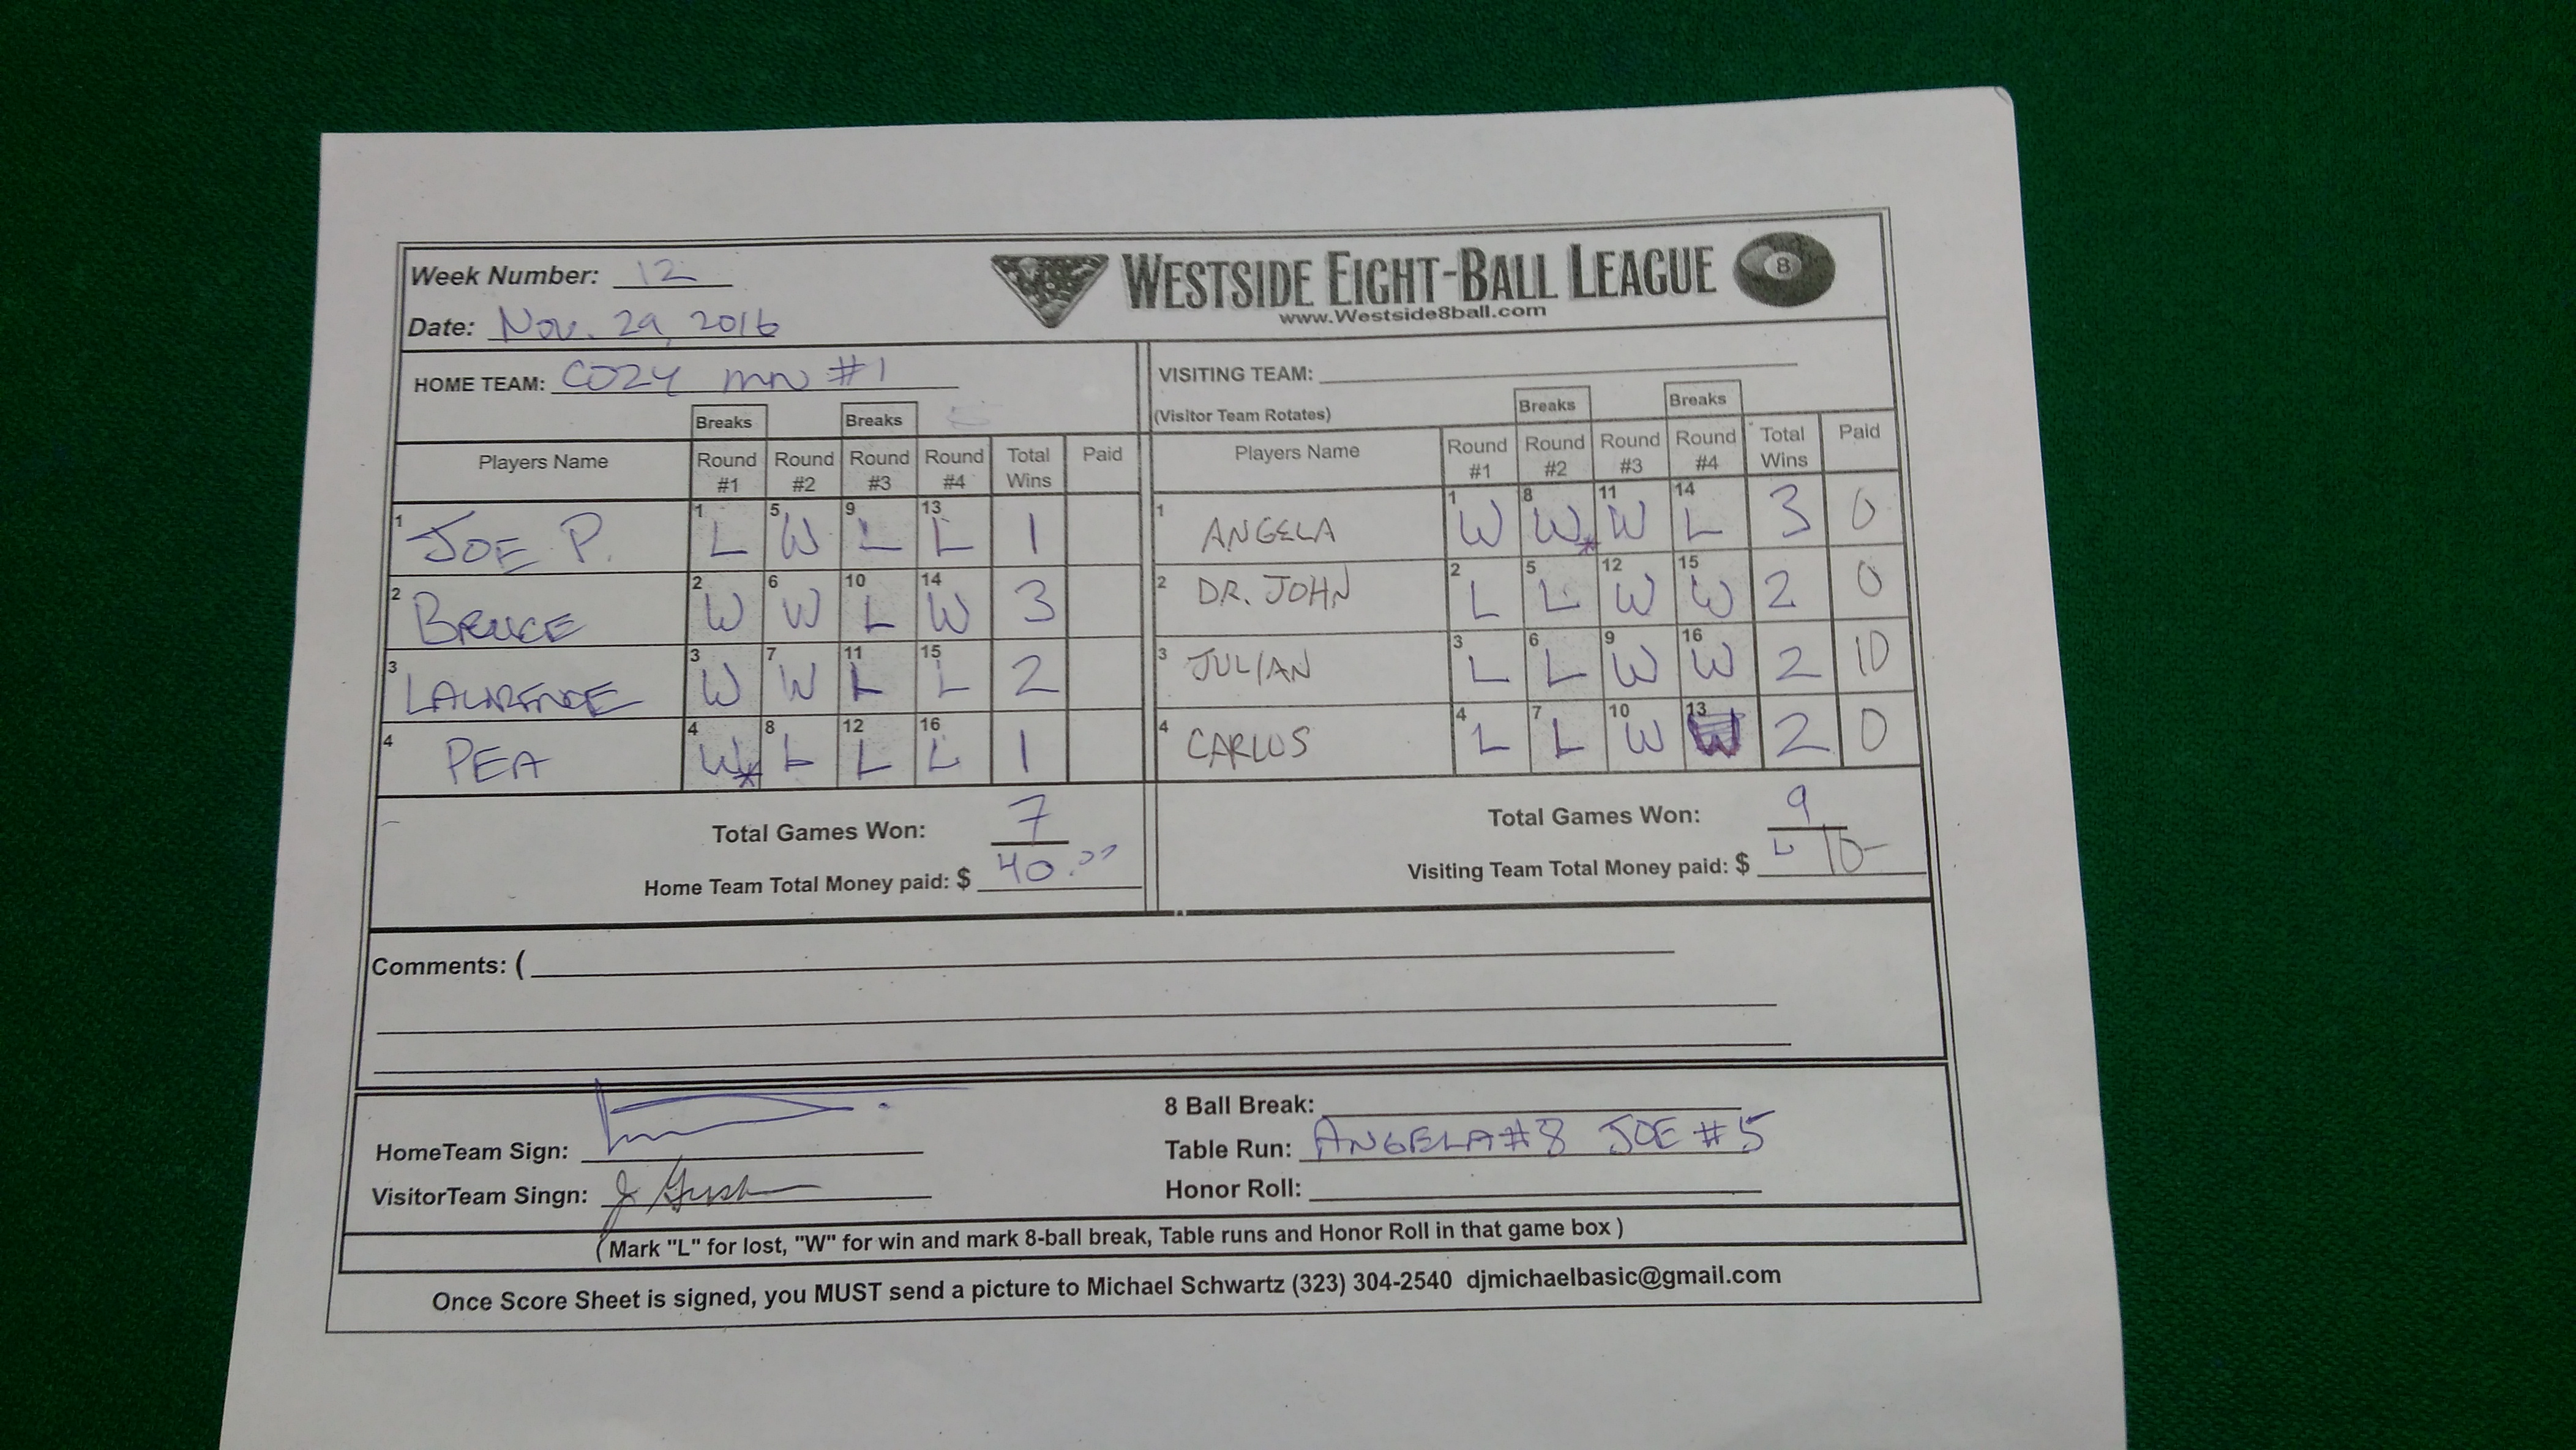 Week Number: 12
WESTSIDE EIGHT-BALL LEAGUE 8
www.Westside8ball.com
Date: Nov. 29, 2016
HOME TEAM: COZY INN #1
VISITING TEAM:
(Visitor Team Rotates)
Breaks Breaks Breaks Breaks
Players Name Round #1 Round #2 Round #3 Round #4 Total Wins Paid Players Name Round #1 Round #2 Round #3 Round #4 Total Wins Paid
1 JOE P. 1 L 5 W 9 L 13 L 1 1 ANGELA 1 W 8 W* 11 W 14 L 3 0
2 BRUCE 2 W 6 W 10 L 14 W 3 2 DR. JOHN 2 L 5 L 12 W 15 W 2 0
3 LAWRENCE 3 W 7 W 11 L 15 L 2 3 JULIAN 3 L 6 L 9 W 16 W 2 10
4 PEA 4 W* 8 L 12 L 16 L 1 4 CARLOS 4 L 7 L 10 W 13 W 2 0
Total Games Won: 7 Total Games Won: 9
Home Team Total Money paid: $ 40.00 Visiting Team Total Money paid: $ 10-
Comments: (
HomeTeam Sign:
VisitorTeam Singn:
8 Ball Break:
Table Run: ANGELA #8 JOE #5
Honor Roll:
(Mark "L" for lost, "W" for win and mark 8-ball break, Table runs and Honor Roll in that game box )
Once Score Sheet is signed, you MUST send a picture to Michael Schwartz (323) 304-2540 djmichaelbasic@gmail.com